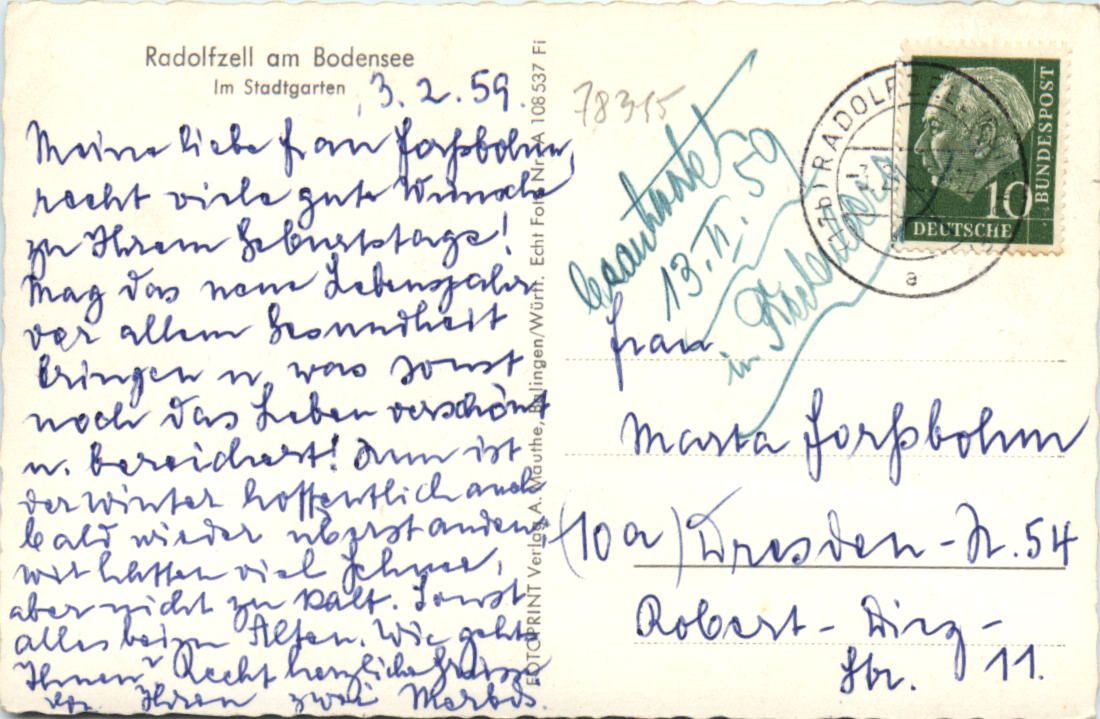 Radolfzell am Bodensee
Im Stadtgarten
3. 2. 59.
Meine liebe Frau Forßbohm,
recht viele gute Wünsche
zu Ihrem Geburtstage!
Mag das neue Lebensjahr
vor allem Gesundheit
bringen u. was sonst
noch das Leben verschönt
u. bereichert! Nun ist
der Winter hoffentlich auch
bald wieder überstanden,
wir hatten viel Schnee,
aber nicht zu kalt. Sonst
alles beim Alten. Wie geht's
Ihnen? Recht herzliche Grüsse
von Ihren zwei
FOTOPRINT Verlag A. Mauthe, Balingen/Württ. Echt Foto Nr. A 108537 Fi
78315
beantwortet
13. II. 59
in
RADOLFZELL
a
10
DEUTSCHE
BUNDESPOST
Frau
Marta Forßbohm
(10a) Dresden-N. 54
Robert-Diez-
Str. 11.